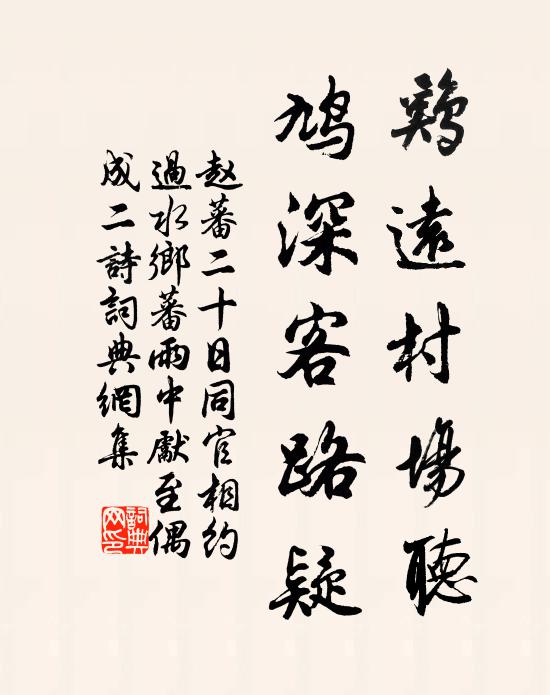 鷄遠村場聽
鳩深客路疑
赵蕃二十日同官相约
過水鄉蕃雨中獻至偶
成二詩詞典網集
詞典网印